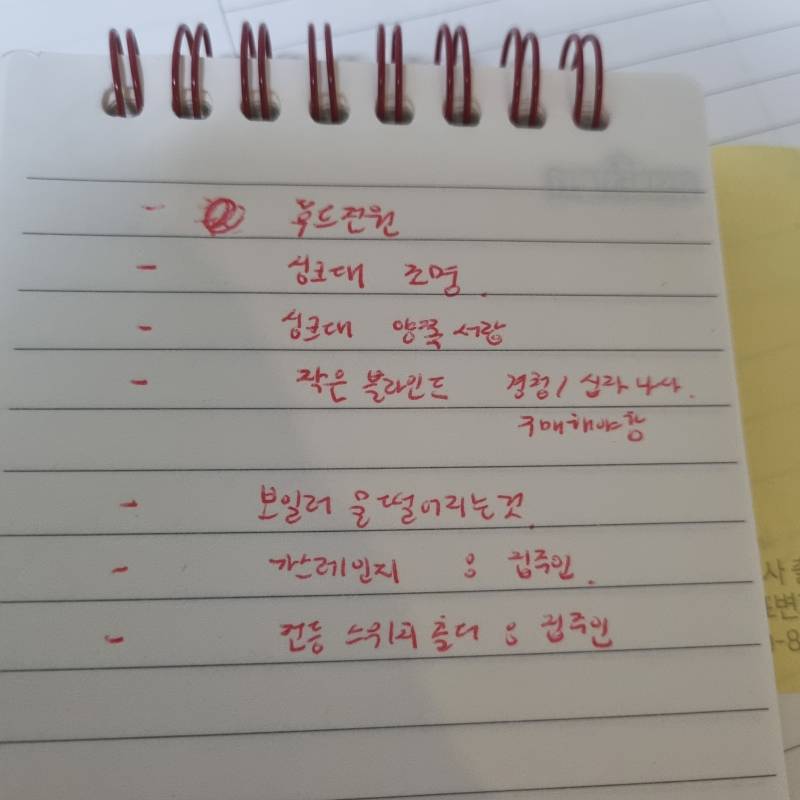 - 후드전원
- 싱크대 조명.
- 싱크대 양쪽 서랍
- 작은 블라인드 경첩/ 십자 나사.
구매해야함
- 보일러 물떨어지는것.
- 가스레인지 : 집주인.
- 전등 스위치 홀더 : 집주인